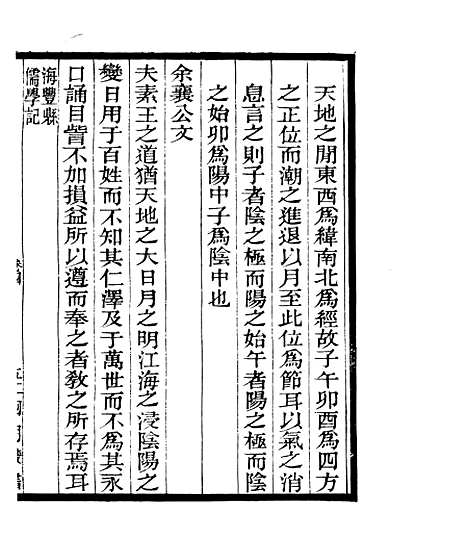 天地之閒東西爲緯南北爲經故子午卯酉爲四方
之正位而潮之進退以月至此位爲節耳以氣之消
息言之則子者陰之極而陽之始午者陽之極而陰
之始卯爲陽中子爲陰中也
余襄公文
夫素王之道猶天地之大日月之明江海之浸陰陽之
變日用于百姓而不知其仁澤及于萬世而不爲其永
口誦目眥不加損益所以遵而奉之者敎之所存焉耳
海豐縣
儒學記